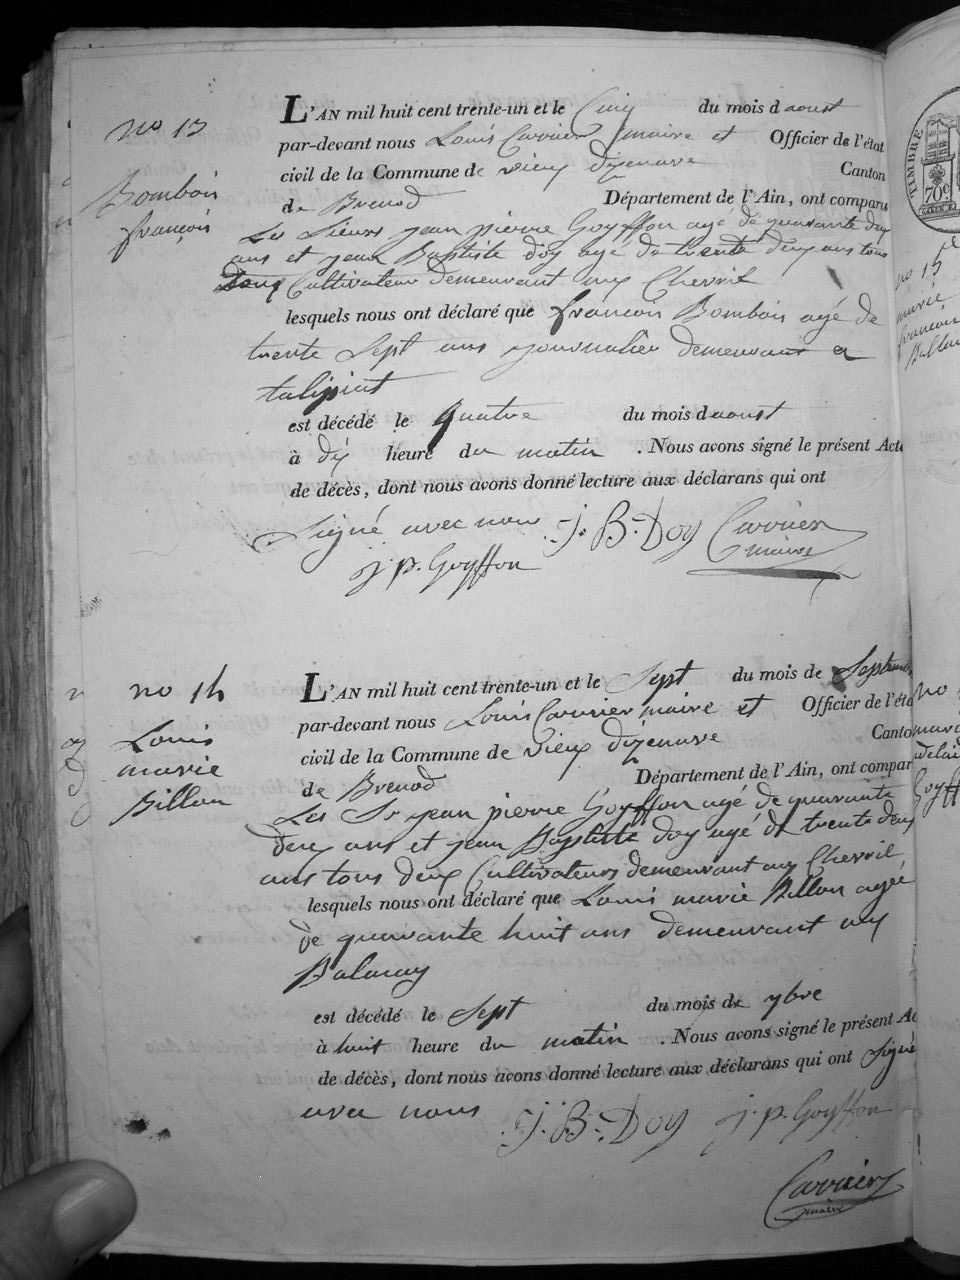 no 13
Bombois
françois
L'AN mil huit cent trente-un et le Cinq du mois d aoust
par-devant nous Louis Carrier maire et Officier de l'état
civil de la Commune de vieux dizenave Canton
de Brenod Département de l'Ain, ont comparu
Les Sieurs jean pierre Goyffon agé de quarante deux
ans et jean Baptiste doy agé de trente deux ans tous
deux Cultivateur demeurant aux Chevril
lesquels nous ont déclaré que françois Bombois agé de
trente Sept ans journalier demeurant a
talipiat
est décédé le quatre du mois d aoust
à dix heure du matin . Nous avons signé le présent Acte
de décès, dont nous avons donné lecture aux déclarans qui ont
Signé avec nous J. B. Doy Carrier
maire
j p. Goyffon
no 14
Louis
marie
Billon
L'AN mil huit cent trente-un et le Sept du mois de Septembre
par-devant nous Louis Carrier maire et Officier de l'éta
civil de la Commune de vieux dizenave Canto
de Brenod Département de l'Ain, ont compar
Les Sr jean pierre Goyffon agé de quarante
deux ans et jean Baptiste doy agé de trente deux
ans tous deux Cultivateurs demeurant aux Chevril
lesquels nous ont déclaré que Louis marie Billon agé
de quarante huit ans demeurant aux
Balmay
est décédé le Sept du mois de 7bre
à huit heure du matin . Nous avons signé le présent Ac
de décès, dont nous avons donné lecture aux déclarans qui ont Signé
avec nous J. B. Doy j. p. Goyffon
Carrier
maire
TIMBRE
70c
no 15
marie
françois